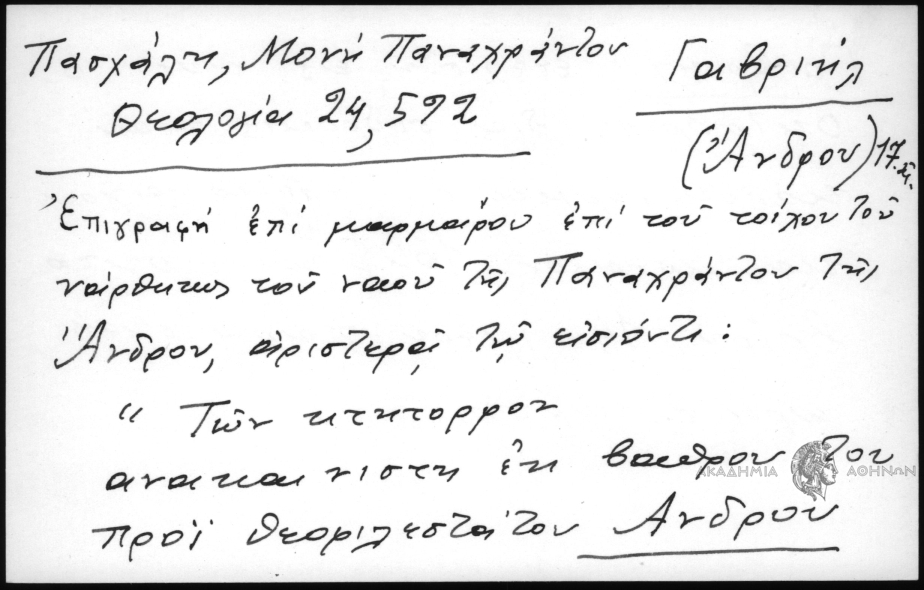 Πασχάλη, Μονή Παναχράντου
Θεολογία 24, 592
Γαβριήλ
(Ἄνδρου) 17 αἰ.
Ἐπιγραφή ἐπί μαρμάρου ἐπί τοῦ τοίχου τοῦ
νάρθηκος τοῦ ναοῦ τῆς Παναχράντου τῆς
Ἄνδρου, ἀριστερᾷ τῷ εἰσιόντι:
“ Τῶν κτητορρον
ανακαινιστη ἐκ βαθρου του
προϊ θεοφιλεστάτου Ανδρου
ΑΚΑΔΗΜΙΑ ΑΘΗΝΩΝ